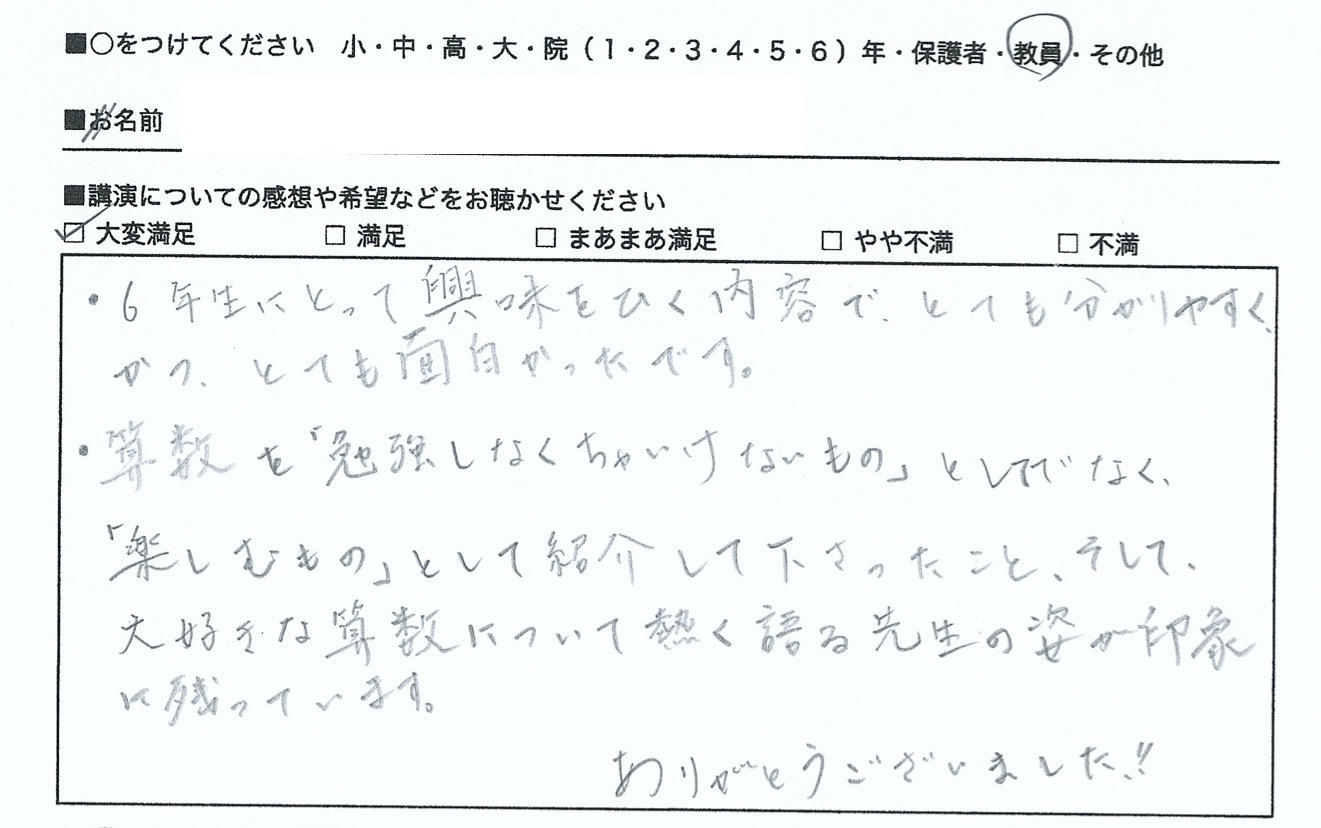 ■○をつけてください 小・中・高・大・院（1・2・3・4・5・6）年・保護者・教員・その他
■お名前
■講演についての感想や希望などをお聴かせください
☑ 大変満足 □ 満足 □ まあまあ満足 □ やや不満 □ 不満
・6年生にとって興味をひく内容で、とても分かりやすく、
かつ、とても面白かったです。
・算数を「勉強しなくちゃいけないもの」としてでなく、
「楽しむもの」として紹介して下さったこと、そして、
大好きな算数について熱く語る先生の姿が印象
に残っています。
ありがとうございました!!